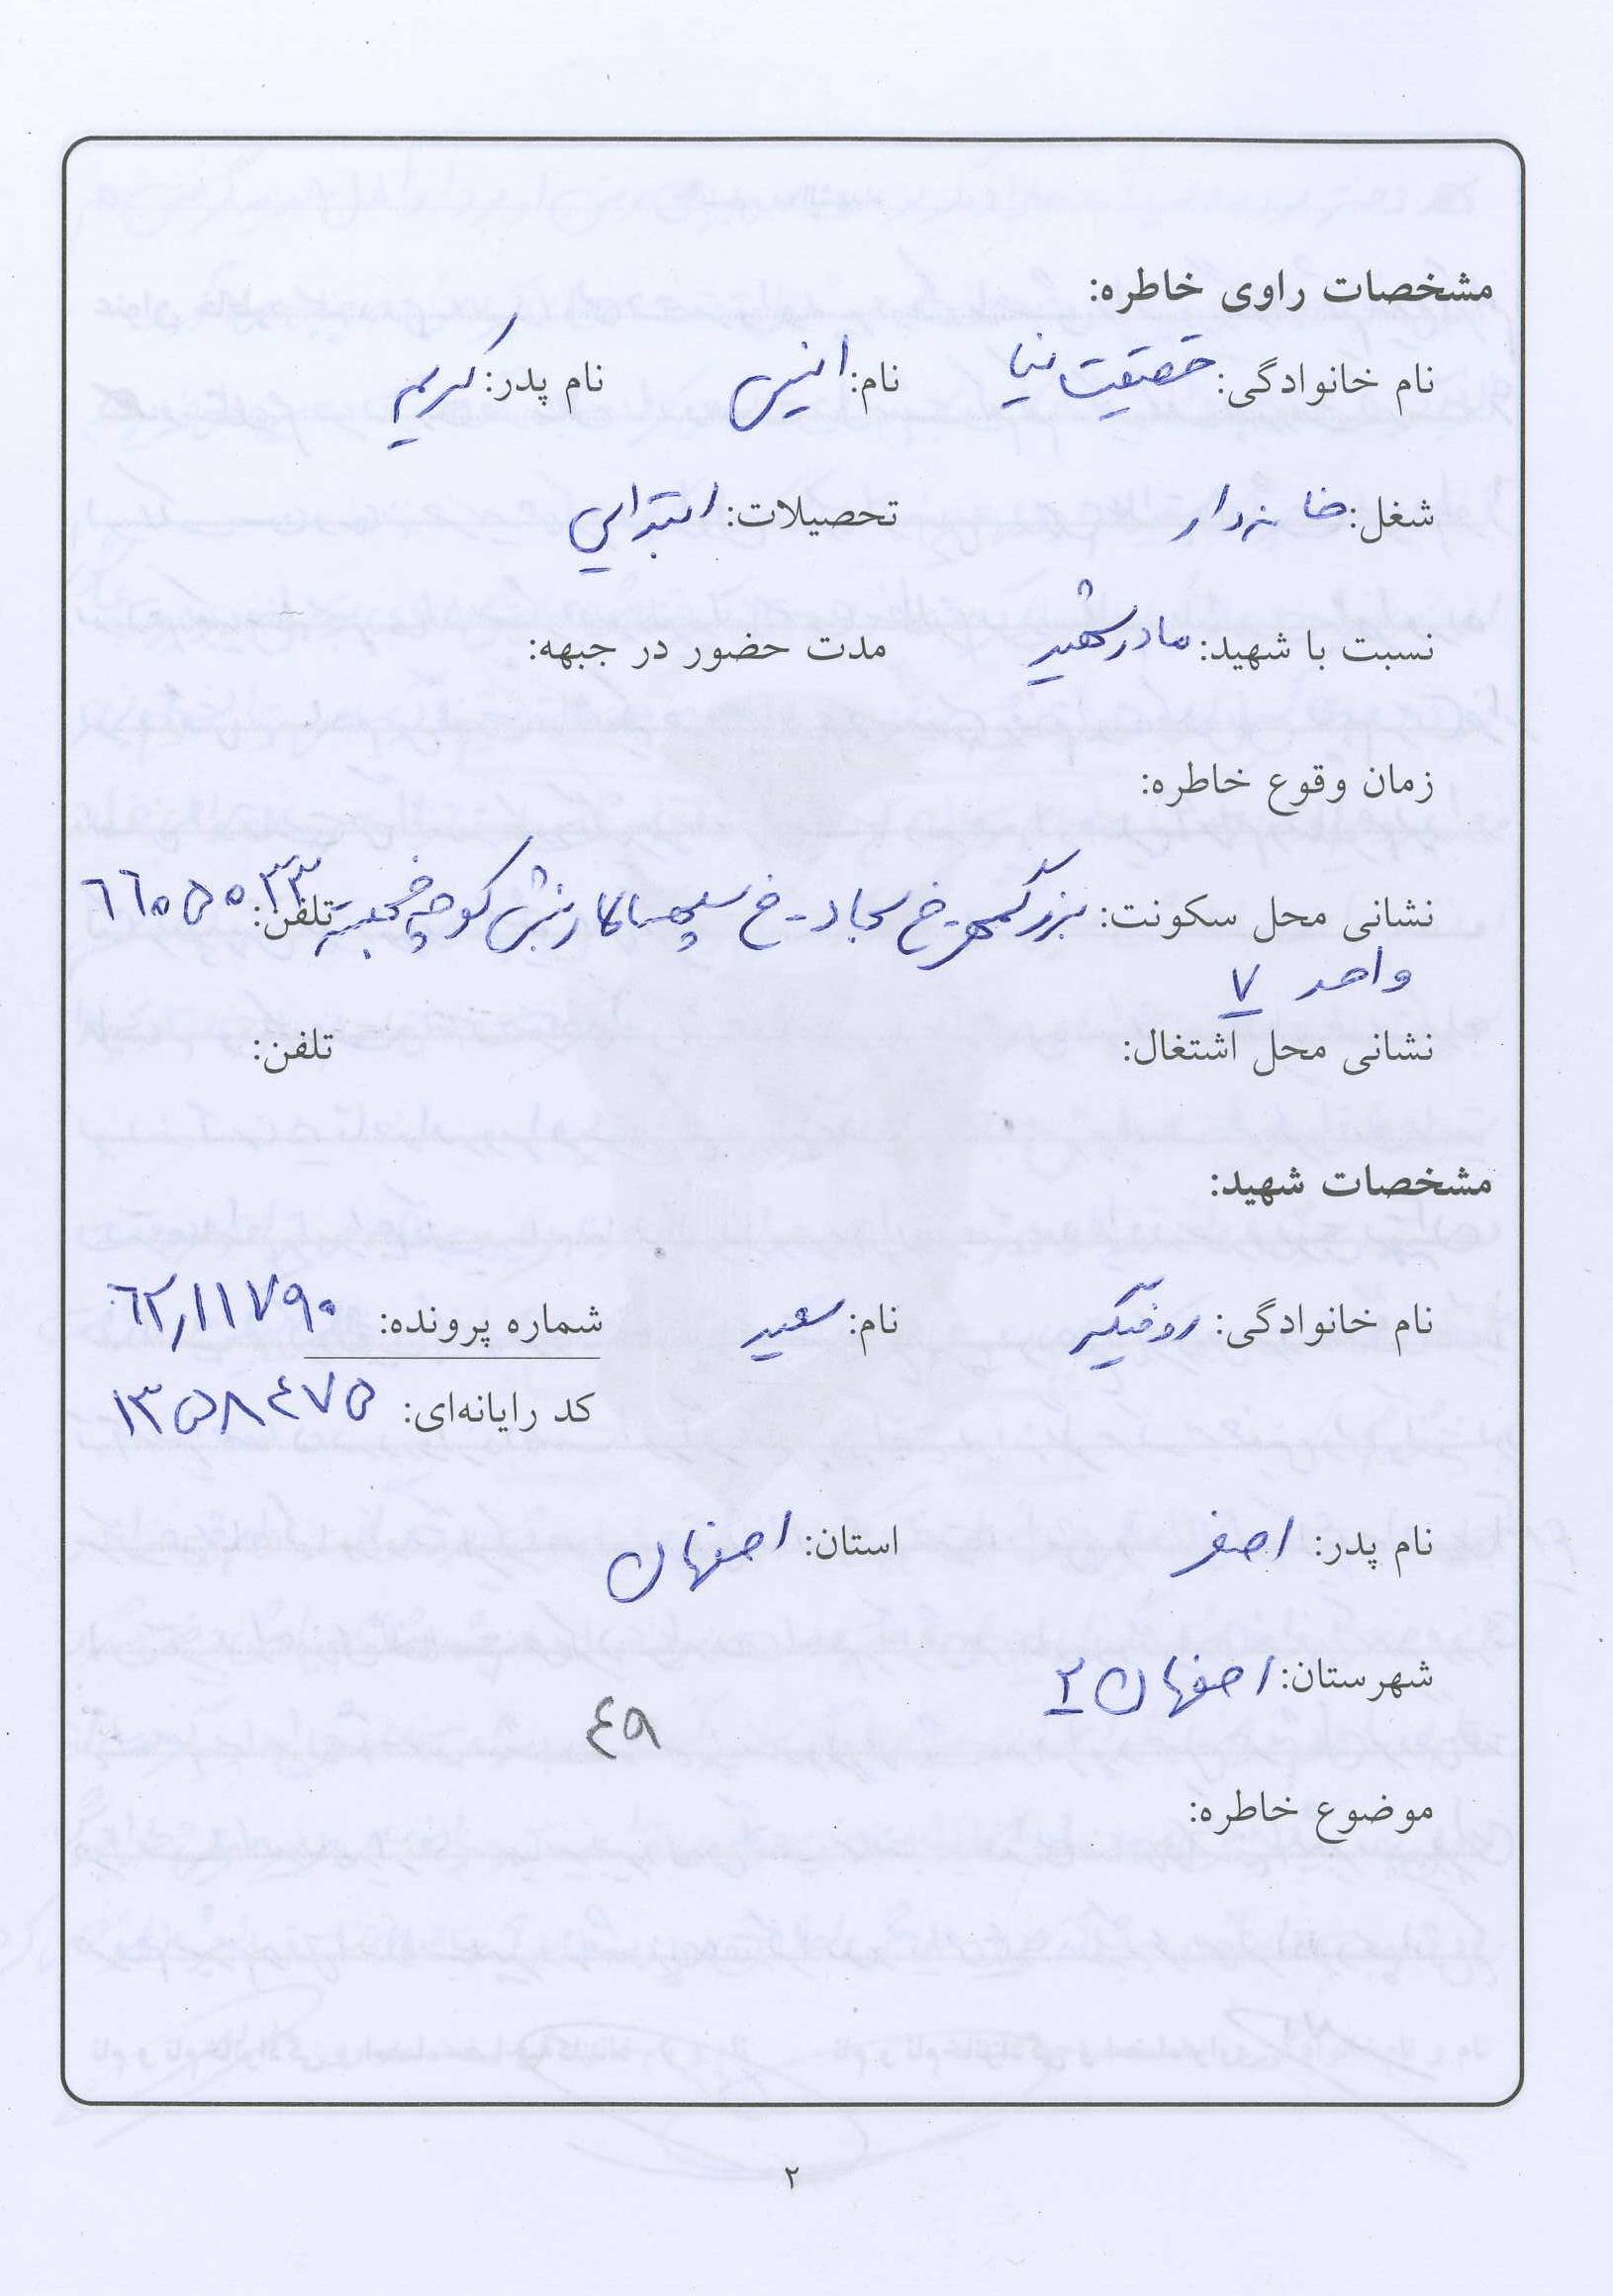 مشخصات راوی خاطره:
نام خانوادگی: حقیقت نیا نام: انیس نام پدر: کریم
شغل: خانه دار تحصیلات: ابتدایی
نسبت با شهید: مادر شهید مدت حضور در جبهه:
زمان وقوع خاطره:
نشانی محل سکونت: بزرگمهر - خ سجاد - خ سپهسالار نبش کوچه خجسته تلفن:
واحد ۷
نشانی محل اشتغال: تلفن:
مشخصات شهید:
نام خانوادگی: روفیگر نام: سعید شماره پرونده: ۶۲٫۱۱۷۹۰
کد رایانه‌ای: ۱۳۵۸۴۷۵
نام پدر: اصغر استان: اصفهان
شهرستان: اصفهان ۲
موضوع خاطره:
۲